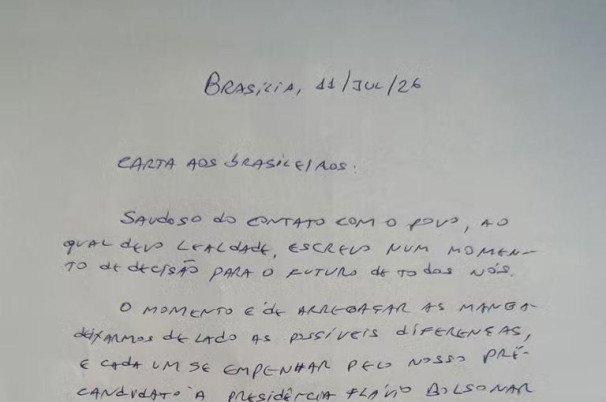 BRASÍLIA, 11/JUL/26
CARTA AOS BRASILEIROS:
SAUDOSO DO CONTATO COM O POVO, AO
QUAL DEVO LEALDADE, ESCREVO NUM MOMEN-
TO DE DECISÃO PARA O FUTURO DE TODOS NÓS.
O MOMENTO É DE ARREGAÇAR AS MANGA
DEIXARMOS DE LADO AS POSSÍVEIS DIFERENÇAS,
E CADA UM SE EMPENHAR PELO NOSSO PRÉ-
CANDIDATO À PRESIDÊNCIA FLÁVIO BOLSONAR